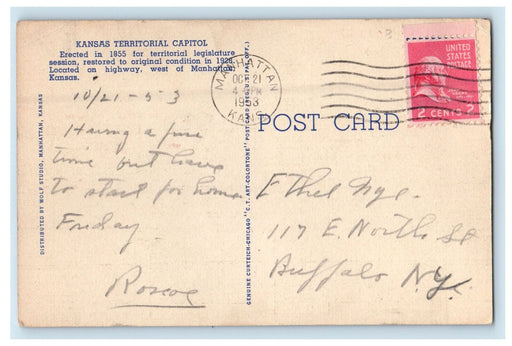 KANSAS TERRITORIAL CAPITOL
Erected in 1855 for territorial legislature
session, restored to original condition in 1928.
Located on highway, west of Manhattan,
Kansas.
10/21-53
Having a fine
time but have
to start for home
Friday.
Roscoe
DISTRIBUTED BY WOLF STUDIO, MANHATTAN, KANSAS
GENUINE CURTEICH-CHICAGO "C.T. ART-COLORTONE" POST CARD (REG. U.S. PAT. OFF.)
MANHATTAN
OCT 21
PM
1953
KANS.
UNITED
STATES
POSTAGE
2 CENTS 2
POST CARD
Ethel Nye.
117 E. North St
Buffalo N.Y.